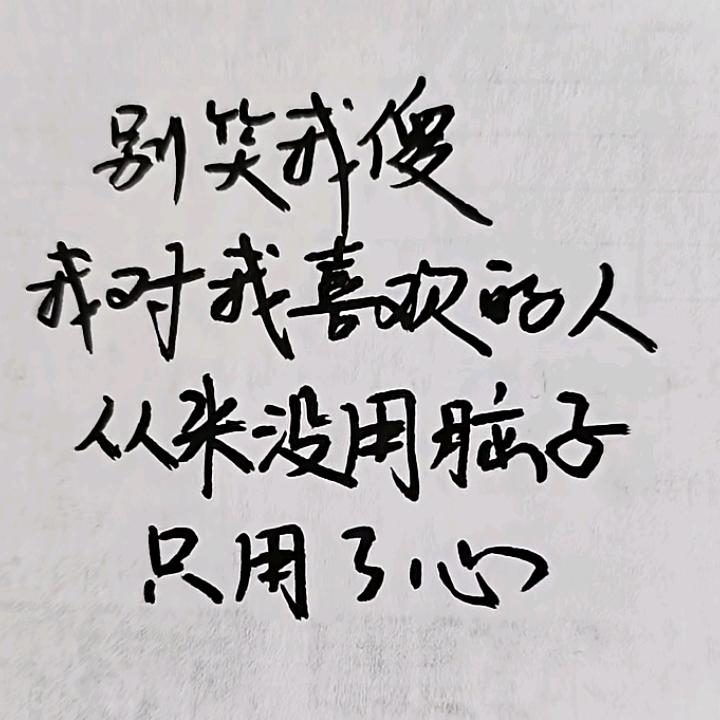 别笑我傻
我对我喜欢的人
从来没用脑子
只用了心